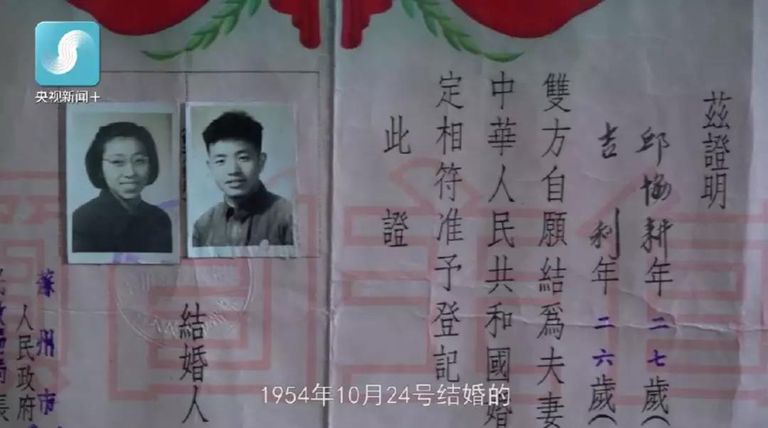 央视新闻+
茲證明
邱協耕年二七歲(
吉利年二六歲(
雙方自願結爲夫妻
中華人民共和國婚
定相符准予登記
此證
結婚人
蘇州市
人民政府
1954年10月24号结婚的